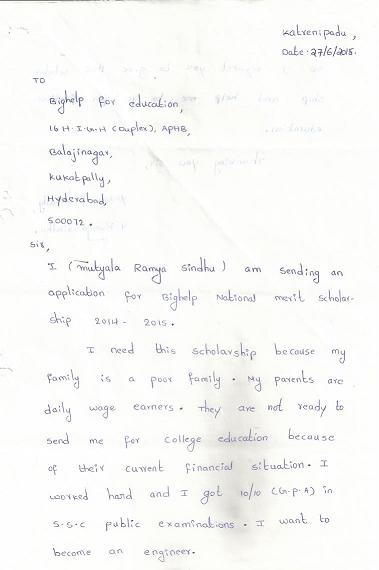 Katrenipadu,
Date: 27/6/2015.
TO
Bighelp for education,
16 H.I.G.H (Duplex), APHB,
Balajinagar,
Kukatpally,
Hyderabad,
500072.
Sir,
I (Mutyala Ramya Sindhu) am sending an
application for Bighelp National merit scholar-
ship 2014 - 2015.
I need this scholarship because my
family is a poor family. My parents are
daily wage earners. They are not ready to
send me for college education because
of their current financial situation. I
worked hard and I got 10/10 (G.P.A) in
S.S.C public examinations. I want to
become an engineer.